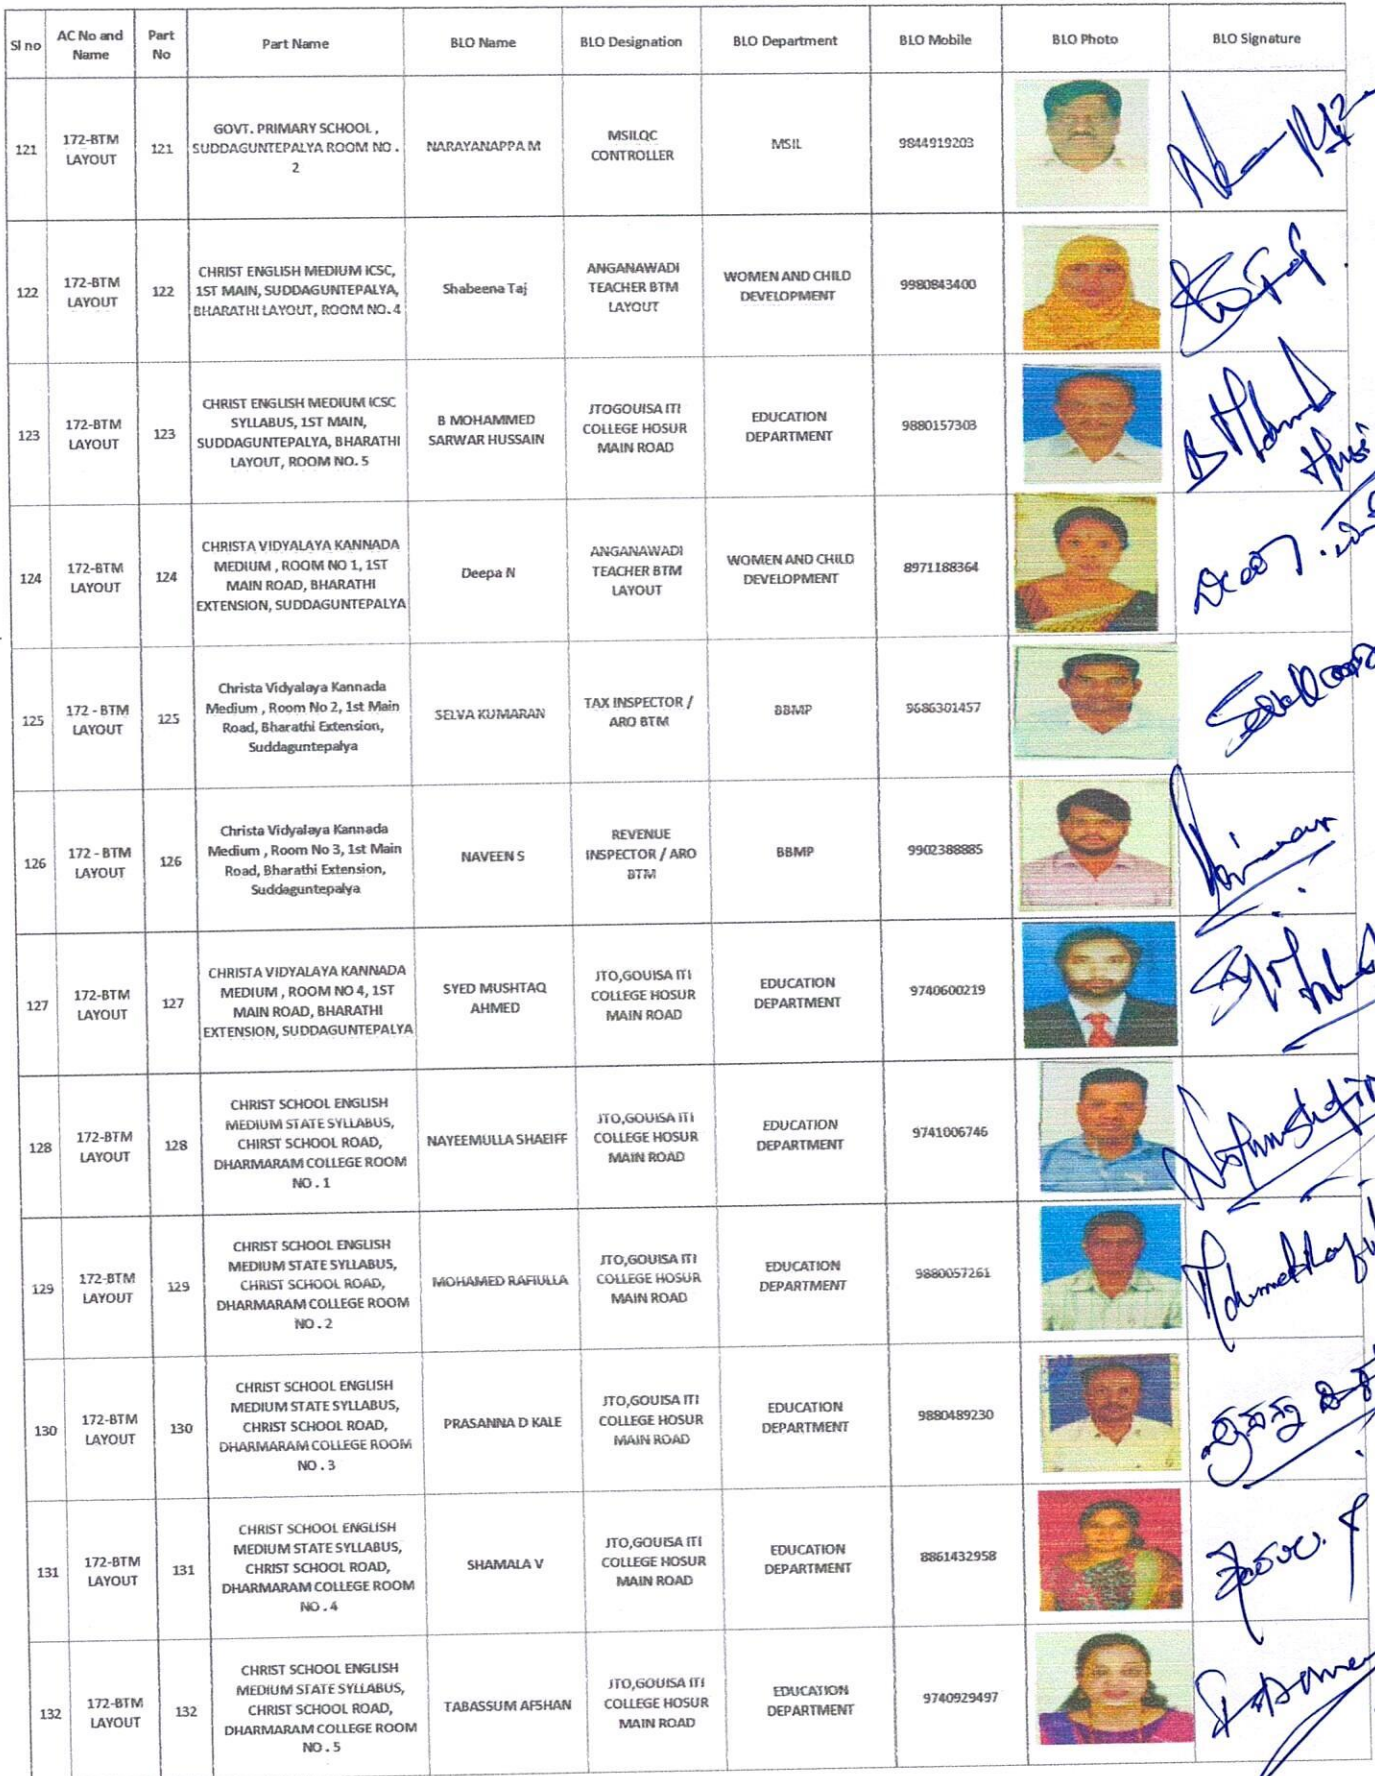 Sl no
AC No and
Name
Part
No
Part Name
BLO Name
BLO Designation
BLO Department
BLO Mobile
BLO Photo
BLO Signature
121
172-BTM
LAYOUT
121
GOVT. PRIMARY SCHOOL ,
SUDDAGUNTEPALYA ROOM NO .
2
NARAYANAPPA M
MSILQC
CONTROLLER
MSIL
9844919203
122
172-BTM
LAYOUT
122
CHRIST ENGLISH MEDIUM ICSC,
1ST MAIN, SUDDAGUNTEPALYA,
BHARATHI LAYOUT, ROOM NO. 4
Shabeena Taj
ANGANAWADI
TEACHER BTM
LAYOUT
WOMEN AND CHILD
DEVELOPMENT
9980843400
123
172-BTM
LAYOUT
123
CHRIST ENGLISH MEDIUM ICSC
SYLLABUS, 1ST MAIN,
SUDDAGUNTEPALYA, BHARATHI
LAYOUT, ROOM NO. 5
B MOHAMMED
SARWAR HUSSAIN
JTOGOUISA ITI
COLLEGE HOSUR
MAIN ROAD
EDUCATION
DEPARTMENT
9880157303
124
172-BTM
LAYOUT
124
CHRISTA VIDYALAYA KANNADA
MEDIUM , ROOM NO 1, 1ST
MAIN ROAD, BHARATHI
EXTENSION, SUDDAGUNTEPALYA
Deepa N
ANGANAWADI
TEACHER BTM
LAYOUT
WOMEN AND CHILD
DEVELOPMENT
8971188364
125
172 - BTM
LAYOUT
125
Christa Vidyalaya Kannada
Medium , Room No 2, 1st Main
Road, Bharathi Extension,
Suddaguntepalya
SELVA KUMARAN
TAX INSPECTOR /
ARO BTM
BBMP
9686301457
126
172 - BTM
LAYOUT
126
Christa Vidyalaya Kannada
Medium , Room No 3, 1st Main
Road, Bharathi Extension,
Suddaguntepalya
NAVEEN S
REVENUE
INSPECTOR / ARO
BTM
BBMP
9902388885
127
172-BTM
LAYOUT
127
CHRISTA VIDYALAYA KANNADA
MEDIUM , ROOM NO 4, 1ST
MAIN ROAD, BHARATHI
EXTENSION, SUDDAGUNTEPALYA
SYED MUSHTAQ
AHMED
JTO,GOUISA ITI
COLLEGE HOSUR
MAIN ROAD
EDUCATION
DEPARTMENT
9740600219
128
172-BTM
LAYOUT
128
CHRIST SCHOOL ENGLISH
MEDIUM STATE SYLLABUS,
CHIRST SCHOOL ROAD,
DHARMARAM COLLEGE ROOM
NO . 1
NAYEEMULLA SHAEIFF
JTO,GOUISA ITI
COLLEGE HOSUR
MAIN ROAD
EDUCATION
DEPARTMENT
9741006746
129
172-BTM
LAYOUT
129
CHRIST SCHOOL ENGLISH
MEDIUM STATE SYLLABUS,
CHRIST SCHOOL ROAD,
DHARMARAM COLLEGE ROOM
NO . 2
MOHAMED RAFIULLA
JTO,GOUISA ITI
COLLEGE HOSUR
MAIN ROAD
EDUCATION
DEPARTMENT
9880057261
130
172-BTM
LAYOUT
130
CHRIST SCHOOL ENGLISH
MEDIUM STATE SYLLABUS,
CHRIST SCHOOL ROAD,
DHARMARAM COLLEGE ROOM
NO . 3
PRASANNA D KALE
JTO,GOUISA ITI
COLLEGE HOSUR
MAIN ROAD
EDUCATION
DEPARTMENT
9880489230
131
172-BTM
LAYOUT
131
CHRIST SCHOOL ENGLISH
MEDIUM STATE SYLLABUS,
CHRIST SCHOOL ROAD,
DHARMARAM COLLEGE ROOM
NO . 4
SHAMALA V
JTO,GOUISA ITI
COLLEGE HOSUR
MAIN ROAD
EDUCATION
DEPARTMENT
8861432958
132
172-BTM
LAYOUT
132
CHRIST SCHOOL ENGLISH
MEDIUM STATE SYLLABUS,
CHRIST SCHOOL ROAD,
DHARMARAM COLLEGE ROOM
NO . 5
TABASSUM AFSHAN
JTO,GOUISA ITI
COLLEGE HOSUR
MAIN ROAD
EDUCATION
DEPARTMENT
9740929497